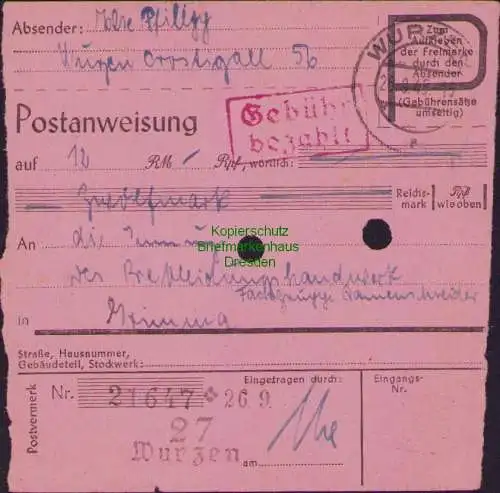 Absender:
Wurzen Crostigall 56
Zum
Aufkleben
der Freimarke
durch den
Absender
(Gebührensätze
umseitig)
WURZEN
Gebühr
bezahlt
Postanweisung
auf 12 RM Rpf, wörtlich:
Zwölfmark
Reichs-
mark
Rpf
wie oben
An die Innung
des Bekleidungshandwerk
Fachgruppe Damenschneider
in Grimma
Kopierschutz
Briefmarkenhaus
Dresden
Straße, Hausnummer,
Gebäudeteil, Stockwerk:
Postvermerk
Nr. 21647 * 26 9.
Eingetragen durch:
Eingangs-
Nr.
27
Wurzen
am